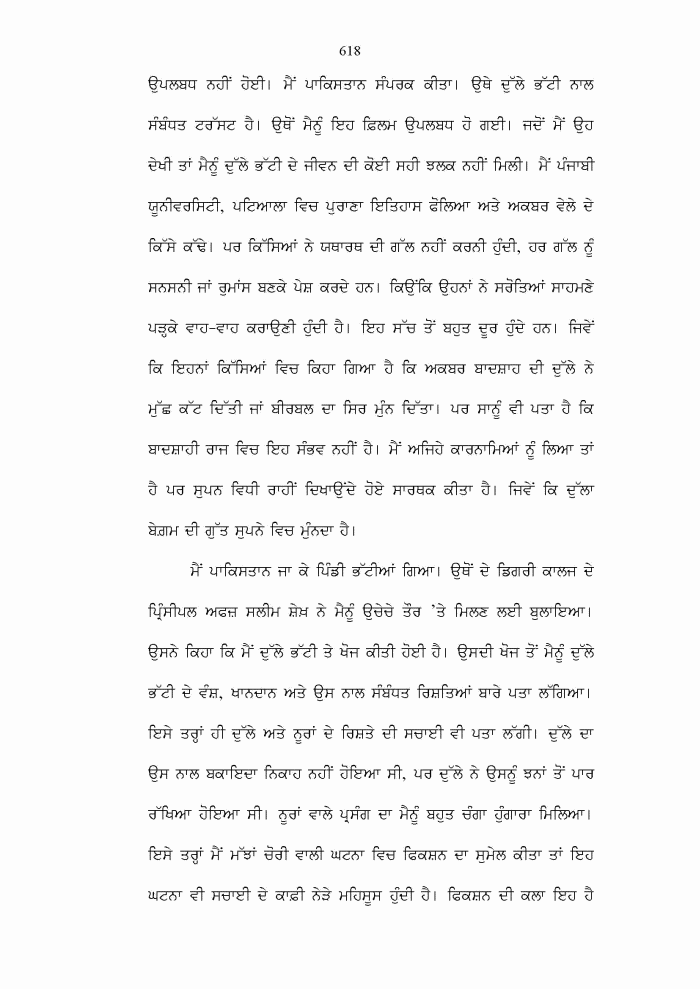 618
ਉਪਲਬਧ ਨਹੀਂ ਹੋਈ। ਮੈਂ ਪਾਕਿਸਤਾਨ ਸੰਪਰਕ ਕੀਤਾ। ਉਥੇ ਦੁੱਲੇ ਭੱਟੀ ਨਾਲ
ਸੰਬੰਧਤ ਟਰੱਸਟ ਹੈ। ਉਥੋਂ ਮੈਨੂੰ ਇਹ ਫ਼ਿਲਮ ਉਪਲਬਧ ਹੋ ਗਈ। ਜਦੋਂ ਮੈਂ ਉਹ
ਦੇਖੀ ਤਾਂ ਮੈਨੂੰ ਦੁੱਲੇ ਭੱਟੀ ਦੇ ਜੀਵਨ ਦੀ ਕੋਈ ਸਹੀ ਝਲਕ ਨਹੀਂ ਮਿਲੀ। ਮੈਂ ਪੰਜਾਬੀ
ਯੂਨੀਵਰਸਿਟੀ, ਪਟਿਆਲਾ ਵਿਚ ਪੁਰਾਣਾ ਇਤਿਹਾਸ ਫੋਲਿਆ ਅਤੇ ਅਕਬਰ ਵੇਲੇ ਦੇ
ਕਿੱਸੇ ਕੱਢੇ। ਪਰ ਕਿੱਸਿਆਂ ਨੇ ਯਥਾਰਥ ਦੀ ਗੱਲ ਨਹੀਂ ਕਰਨੀ ਹੁੰਦੀ, ਹਰ ਗੱਲ ਨੂੰ
ਸਨਸਨੀ ਜਾਂ ਰੁਮਾਂਸ ਬਣਕੇ ਪੇਸ਼ ਕਰਦੇ ਹਨ। ਕਿਉਂਕਿ ਉਹਨਾਂ ਨੇ ਸਰੋਤਿਆਂ ਸਾਹਮਣੇ
ਪੜ੍ਹਕੇ ਵਾਹ-ਵਾਹ ਕਰਾਉਣੀ ਹੁੰਦੀ ਹੈ। ਇਹ ਸੱਚ ਤੋਂ ਬਹੁਤ ਦੂਰ ਹੁੰਦੇ ਹਨ। ਜਿਵੇਂ
ਕਿ ਇਹਨਾਂ ਕਿੱਸਿਆਂ ਵਿਚ ਕਿਹਾ ਗਿਆ ਹੈ ਕਿ ਅਕਬਰ ਬਾਦਸ਼ਾਹ ਦੀ ਦੁੱਲੇ ਨੇ
ਮੁੱਛ ਕੱਟ ਦਿੱਤੀ ਜਾਂ ਬੀਰਬਲ ਦਾ ਸਿਰ ਮੁੰਨ ਦਿੱਤਾ। ਪਰ ਸਾਨੂੰ ਵੀ ਪਤਾ ਹੈ ਕਿ
ਬਾਦਸ਼ਾਹੀ ਰਾਜ ਵਿਚ ਇਹ ਸੰਭਵ ਨਹੀਂ ਹੈ। ਮੈਂ ਅਜਿਹੇ ਕਾਰਨਾਮਿਆਂ ਨੂੰ ਲਿਆ ਤਾਂ
ਹੈ ਪਰ ਸੁਪਨ ਵਿਧੀ ਰਾਹੀਂ ਦਿਖਾਉਂਦੇ ਹੋਏ ਸਾਰਥਕ ਕੀਤਾ ਹੈ। ਜਿਵੇਂ ਕਿ ਦੁੱਲਾ
ਬੇਗ਼ਮ ਦੀ ਗੁੱਤ ਸੁਪਨੇ ਵਿਚ ਮੁੰਨਦਾ ਹੈ।
ਮੈਂ ਪਾਕਿਸਤਾਨ ਜਾ ਕੇ ਪਿੰਡੀ ਭੱਟੀਆਂ ਗਿਆ। ਉਥੋਂ ਦੇ ਡਿਗਰੀ ਕਾਲਜ ਦੇ
ਪ੍ਰਿੰਸੀਪਲ ਅਫਜ਼ ਸਲੀਮ ਸ਼ੇਖ਼ ਨੇ ਮੈਨੂੰ ਉਚੇਚੇ ਤੌਰ ’ਤੇ ਮਿਲਣ ਲਈ ਬੁਲਾਇਆ।
ਉਸਨੇ ਕਿਹਾ ਕਿ ਮੈਂ ਦੁੱਲੇ ਭੱਟੀ ਤੇ ਖੋਜ ਕੀਤੀ ਹੋਈ ਹੈ। ਉਸਦੀ ਖੋਜ ਤੋਂ ਮੈਨੂੰ ਦੁੱਲੇ
ਭੱਟੀ ਦੇ ਵੰਸ਼, ਖਾਨਦਾਨ ਅਤੇ ਉਸ ਨਾਲ ਸੰਬੰਧਤ ਰਿਸ਼ਤਿਆਂ ਬਾਰੇ ਪਤਾ ਲੱਗਿਆ।
ਇਸੇ ਤਰ੍ਹਾਂ ਹੀ ਦੁੱਲੇ ਅਤੇ ਨੂਰਾਂ ਦੇ ਰਿਸ਼ਤੇ ਦੀ ਸਚਾਈ ਵੀ ਪਤਾ ਲੱਗੀ। ਦੁੱਲੇ ਦਾ
ਉਸ ਨਾਲ ਬਕਾਇਦਾ ਨਿਕਾਹ ਨਹੀਂ ਹੋਇਆ ਸੀ, ਪਰ ਦੁੱਲੇ ਨੇ ਉਸਨੂੰ ਝਨਾਂ ਤੋਂ ਪਾਰ
ਰੱਖਿਆ ਹੋਇਆ ਸੀ। ਨੂਰਾਂ ਵਾਲੇ ਪ੍ਰਸੰਗ ਦਾ ਮੈਨੂੰ ਬਹੁਤ ਚੰਗਾ ਹੁੰਗਾਰਾ ਮਿਲਿਆ।
ਇਸੇ ਤਰ੍ਹਾਂ ਮੈਂ ਮੱਝਾਂ ਚੋਰੀ ਵਾਲੀ ਘਟਨਾ ਵਿਚ ਫਿਕਸ਼ਨ ਦਾ ਸੁਮੇਲ ਕੀਤਾ ਤਾਂ ਇਹ
ਘਟਨਾ ਵੀ ਸਚਾਈ ਦੇ ਕਾਫ਼ੀ ਨੇੜੇ ਮਹਿਸੂਸ ਹੁੰਦੀ ਹੈ। ਫਿਕਸ਼ਨ ਦੀ ਕਲਾ ਇਹ ਹੈ